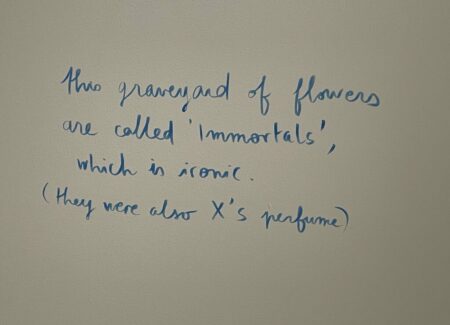 this graveyard of flowers
are called 'immortals',
which is ironic.
(they were also X's perfume)